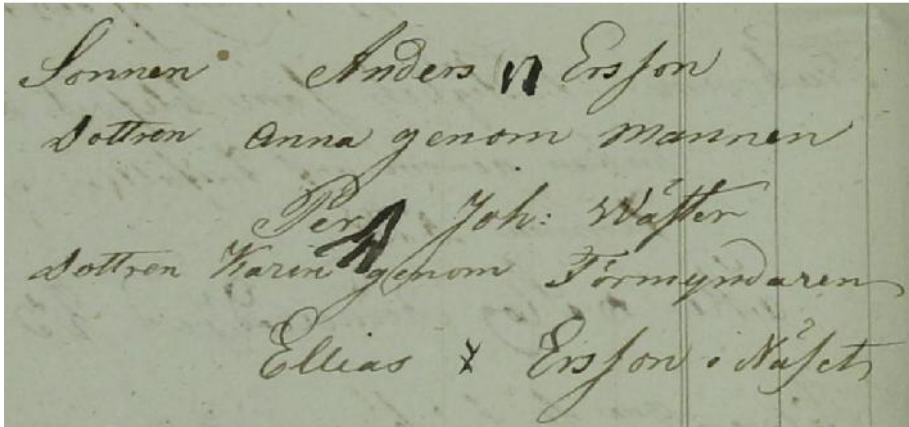 Sonnen Anders Ersson
Dottren Anna genom mannen
Per Joh: Wäster
Dottren Karin genom Förmyndaren
Ellias x Ersson i Näset